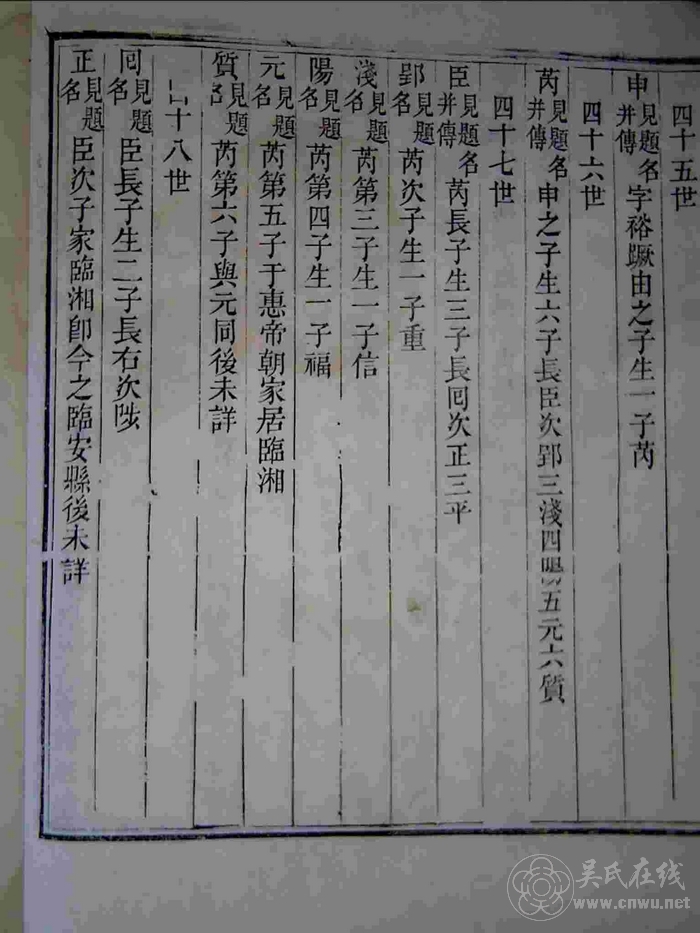 四十五世
申見題名并傳字裕蹶由之子生一子芮
四十六世
芮見題名并傳申之子生六子長臣次郢三淺四陽五元六質
四十七世
臣見題名并傳芮長子生三子長囘次正三平
郢見題名芮次子生一子重
淺見題名芮第三子生一子信
陽見題名芮第四子生一子福
元見題名芮第五子于惠帝朝家居臨湘
質見題名芮第六子與元同後未詳
十八世
囘見題名臣長子生二子長右次陞
正見題名臣次子家臨湘卽今之臨安縣後未詳
吴氏在线
www.cnwu.net